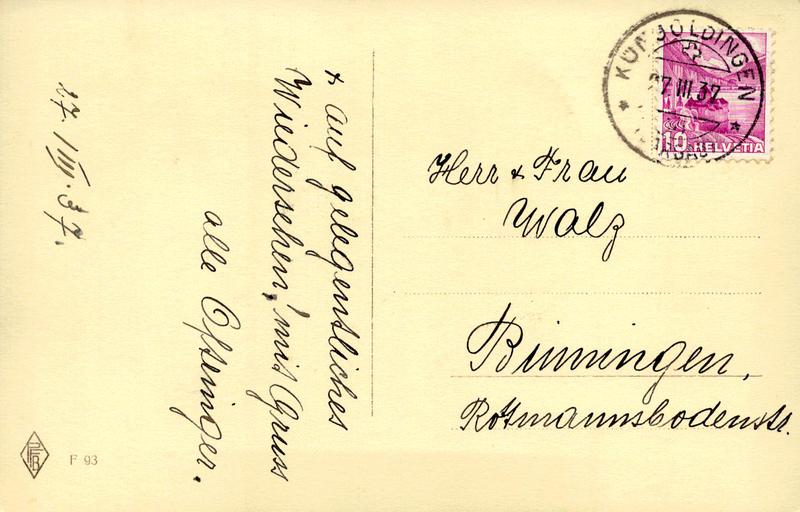 27. III. 37.
+ auf gelegentliches
Wiedersehen! mit Gruss
alle Oftringer.
PFB
F 93
KÜNGOLDINGEN
27.III.37
10 HELVETIA
Herr + Frau
Walz
Binningen,
Rottmannsbodenstr.